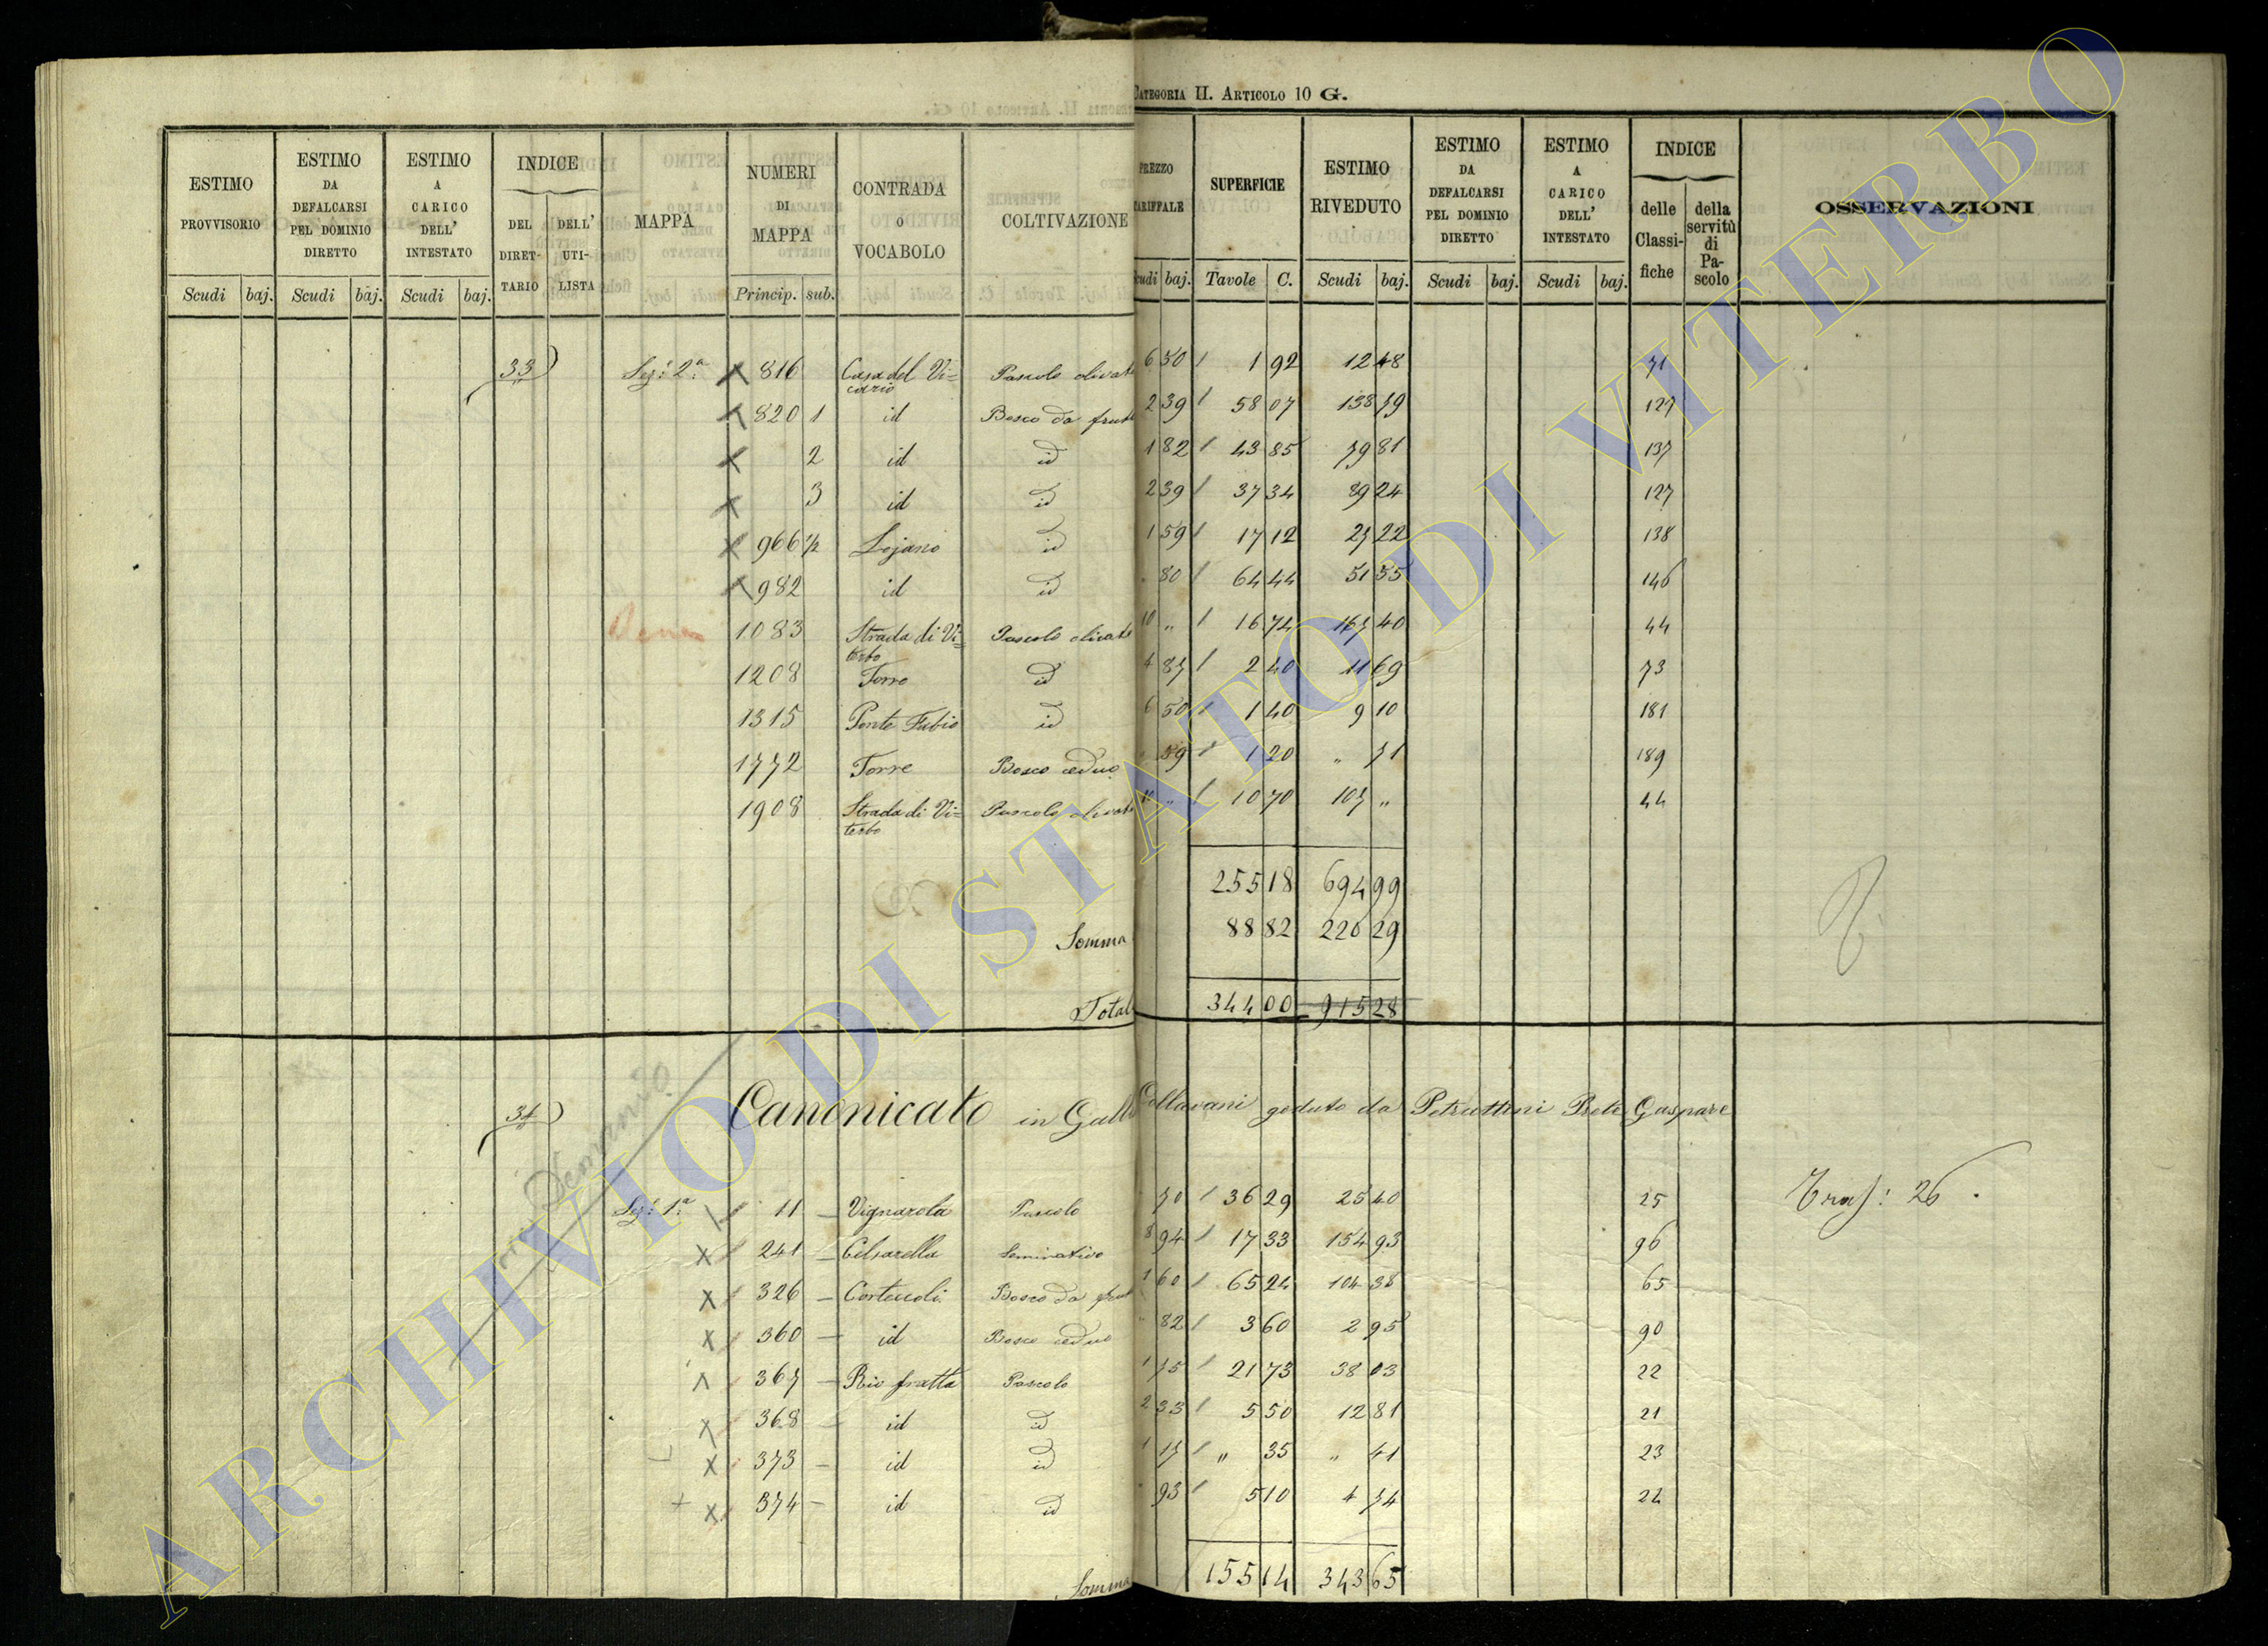 CATEGORIA II. ARTICOLO 10 G.
ESTIMO PROVVISORIO | ESTIMO DA DEFALCARSI PEL DOMINIO DIRETTO | ESTIMO A CARICO DELL' INTESTATO | INDICE | MAPPA | NUMERI DI MAPPA | CONTRADA O VOCABOLO | COLTIVAZIONE | PREZZO TARIFFALE | SUPERFICIE | ESTIMO RIVEDUTO | ESTIMO DA DEFALCARSI PEL DOMINIO DIRETTO | ESTIMO A CARICO DELL' INTESTATO | INDICE | OSSERVAZIONI
DEL DIRET-TARIO | DELL' UTI-LISTA | delle Classi-fiche | della servitù di Pa-scolo
Scudi baj. | Scudi baj. | Scudi baj. | Princip. sub. | Scudi baj. | Tavole C. | Scudi baj. | Scudi baj. | Scudi baj.
33) Sez: 2ª 816 Casa del Vi=cario Pascolo olivato 6 50 1 92 12 48 71
820 1 id Bosco da frutto 2 39 58 07 138 79 127
2 id id 1 82 43 85 79 81 137
3 id id 2 39 37 34 89 24 127
966 1/2 Lojano id 1 59 17 12 27 22 138
982 id id 80 64 44 51 55 146
1083 Strada di Vi=terbo Pascolo olivato 10 „ 16 74 167 40 44
1208 Torre id 4 87 2 40 11 69 73
1315 Ponte Fubio id 6 50 1 40 9 10 181
1772 Torre Bosco ceduo 59 1 20 „ 71 189
1908 Strada di Vi=terbo Pascolo olivato 10 „ 10 70 107 „ 44
255 18 694 99
Somma 88 82 220 29
Total 344 00 915 28
34) Canonicato in Gallo Collavani goduto da Petruttini Prete Gaspare
Demanio
Sez: 1ª 11 Vignarola Pascolo 70 36 29 25 40 25 Trasf: 26
241 Celsarella Seminativo 8 94 17 33 154 93 96
326 Cortecoli Bosco da frut 1 60 65 24 104 38 65
360 id Bosco ceduo 82 3 60 2 95 90
367 Rio fratta Pascolo 1 75 21 73 38 03 22
368 id id 2 33 5 50 12 81 21
373 id id 1 17 „ 35 „ 41 23
374 id id 93 5 10 4 74 24
Somma 155 14 343 65
ARCHIVIO DI STATO DI VITERBO